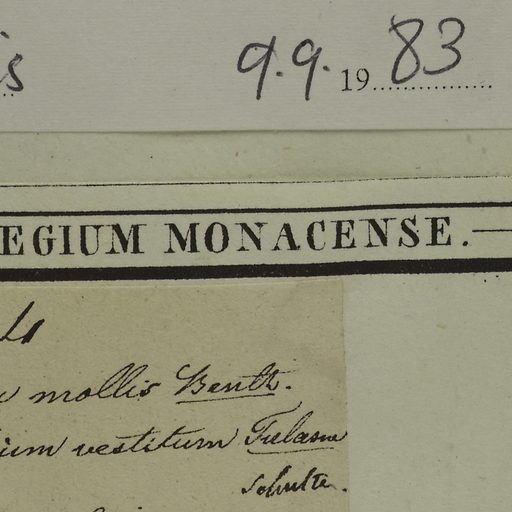 is 9.9. 1983
EGIUM MONACENSE.
mollis Benth.
ium vestitum Tulasne
Schulte.